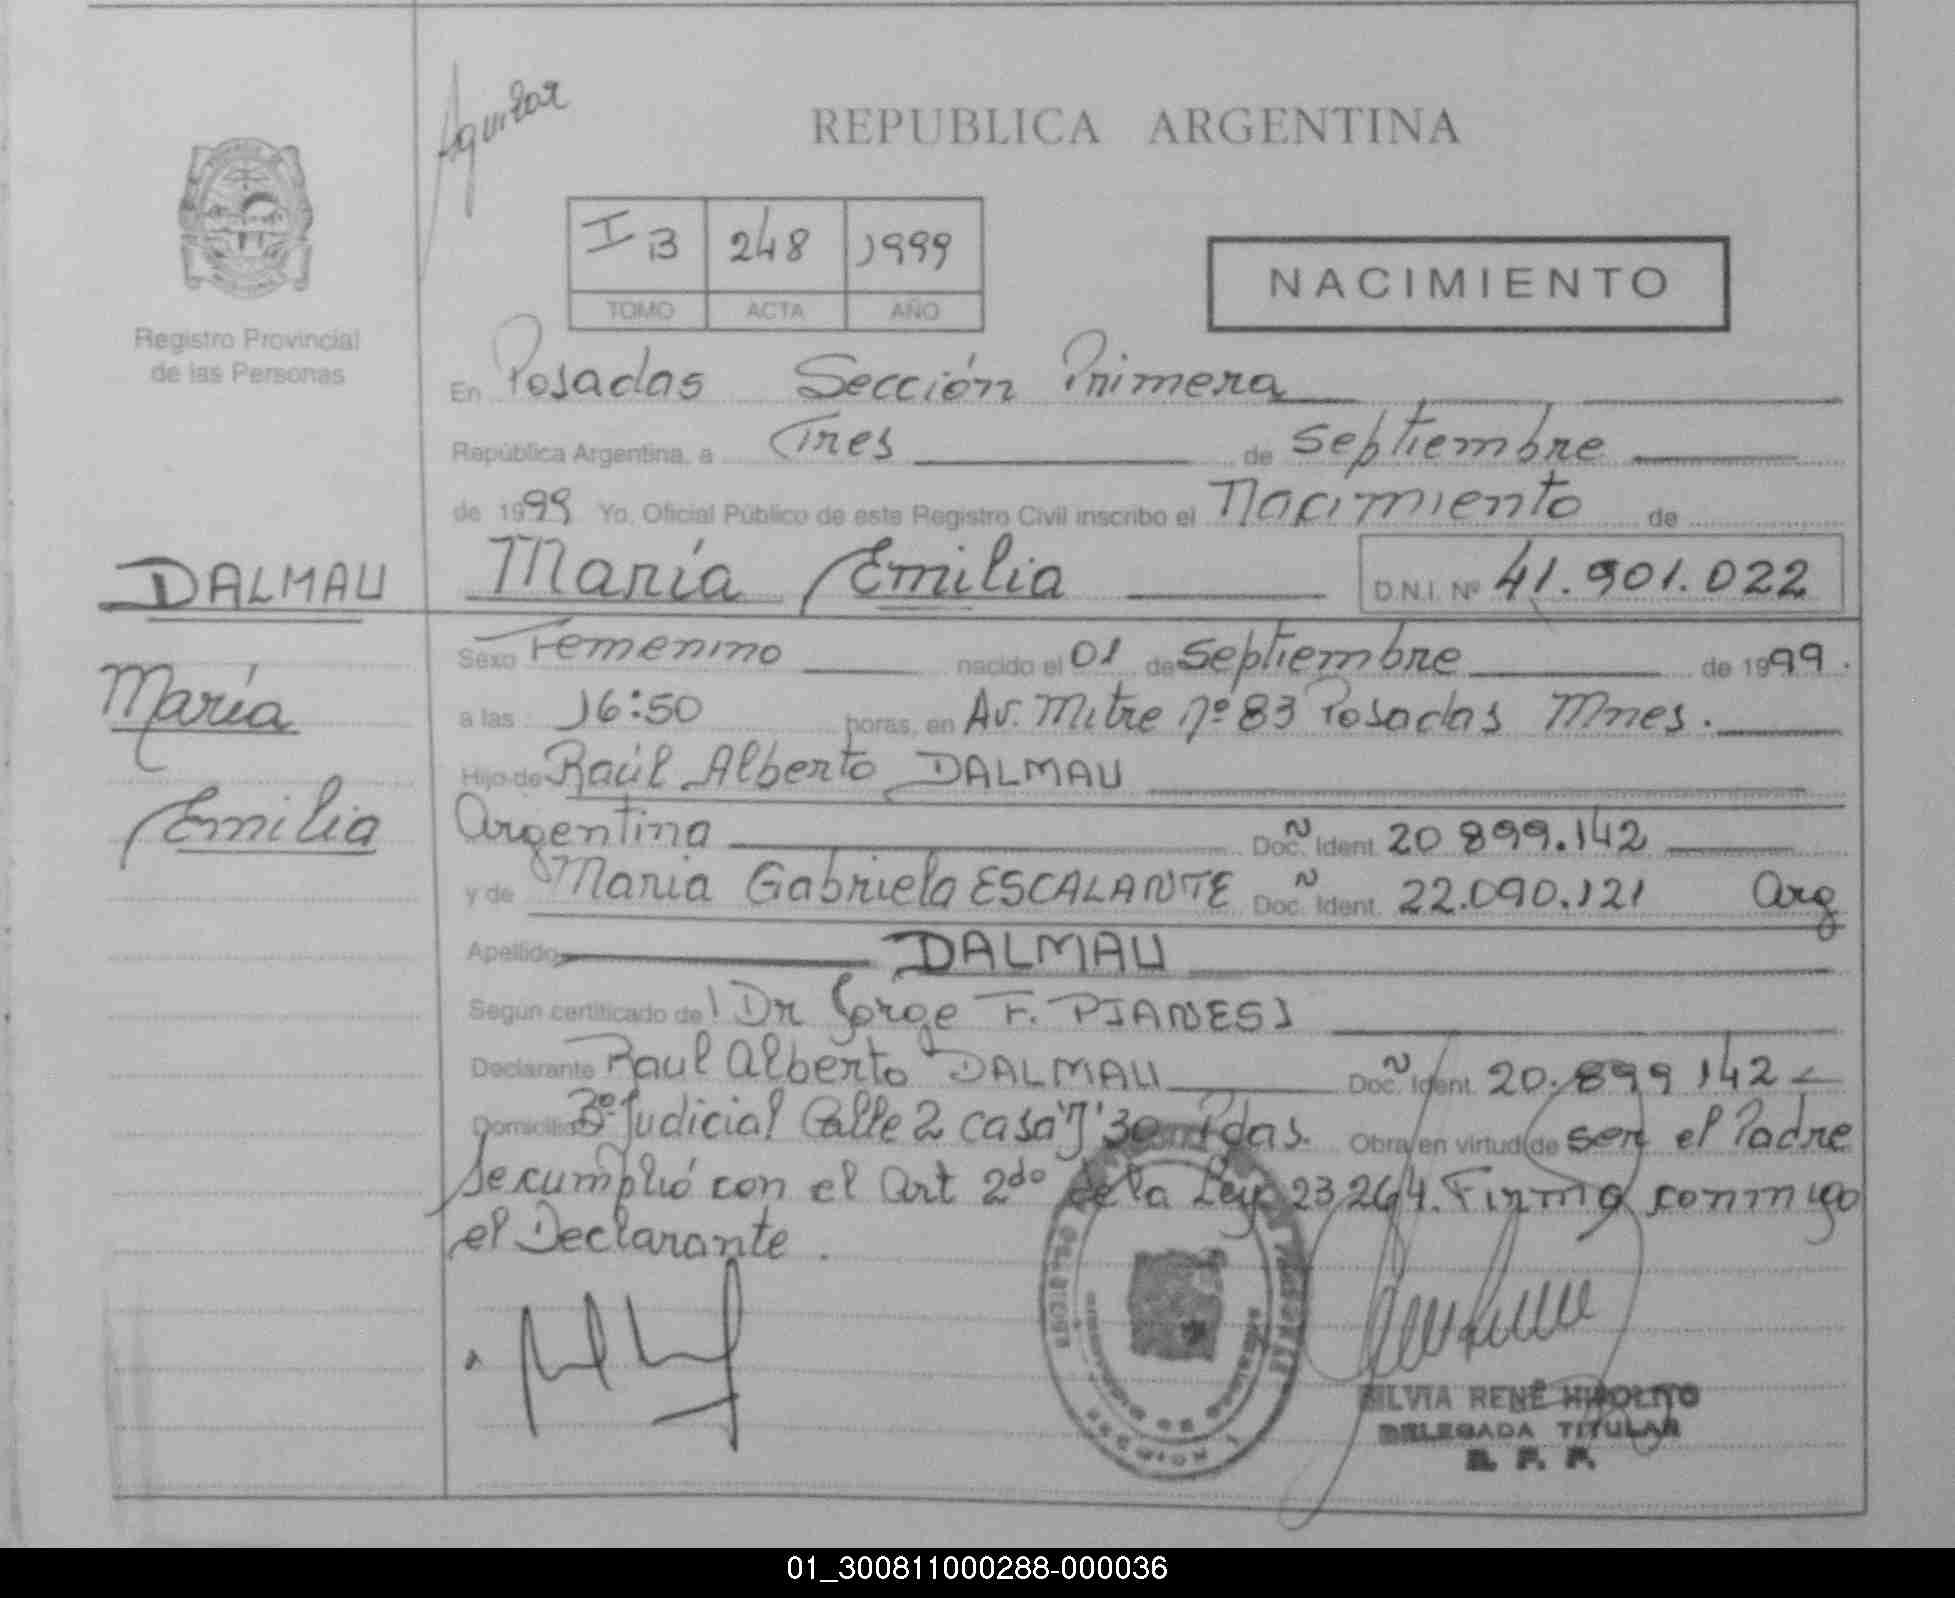 Aguilar
REPUBLICA ARGENTINA
I B 248 1999
TOMO ACTA AÑO
NACIMIENTO
Registro Provincial
de las Personas
En Posadas Sección Primera
República Argentina, a Tres de Septiembre
de 1999 Yo, Oficial Público de este Registro Civil inscribo el Nacimiento de
DALMAU
María Emilia D.N.I. Nº 41.901.022
María
Emilia
Sexo Femenino nacido el 01 de Septiembre de 1999.
a las 16:50 horas, en Av. Mitre nº 83 Posadas Mnes.
Hijo de Raúl Alberto DALMAU
Argentina Doc. Ident. 20 899.142
y de Maria Gabriela ESCALANTE Doc. Ident. 22.090.121 Arg
Apellido DALMAU
Según certificado de Dr Jorge F. PIANESI
Declarante Raul Alberto DALMAU Doc. Ident. 20.899 142
Domicilio Bº Judicial Calle 2 casa "J" 30 Pdas. Obra en virtud de ser el Padre
Se cumplió con el Art 2do de la Ley 23264. Firma conmigo
el Declarante.
SILVIA RENÉ HIPOLITO
DELEGADA TITULAR
R. P. P.
01_300811000288-000036